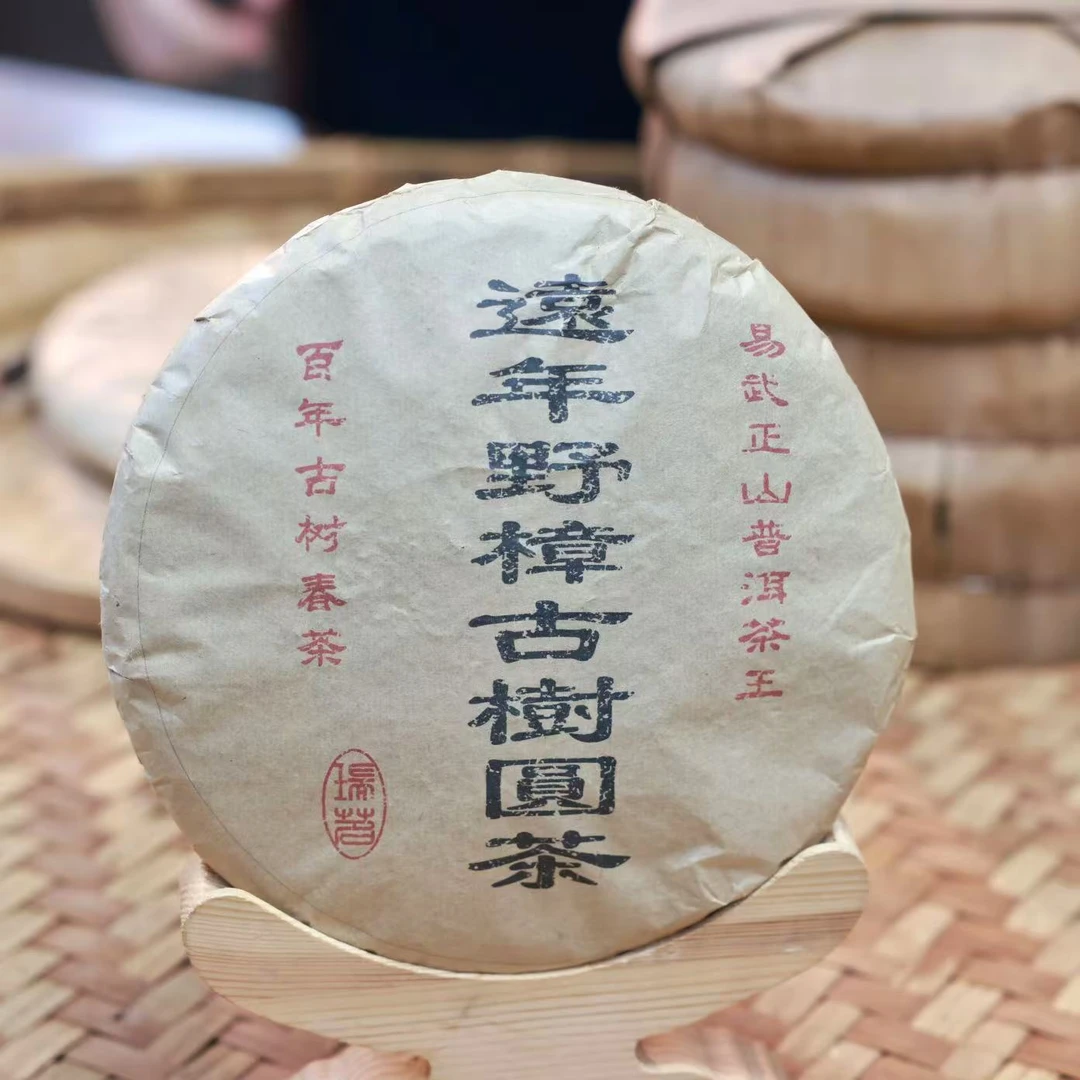 易武正山普洱茶王
遠年野樟古樹圓茶
百年古树春茶
瑞茗